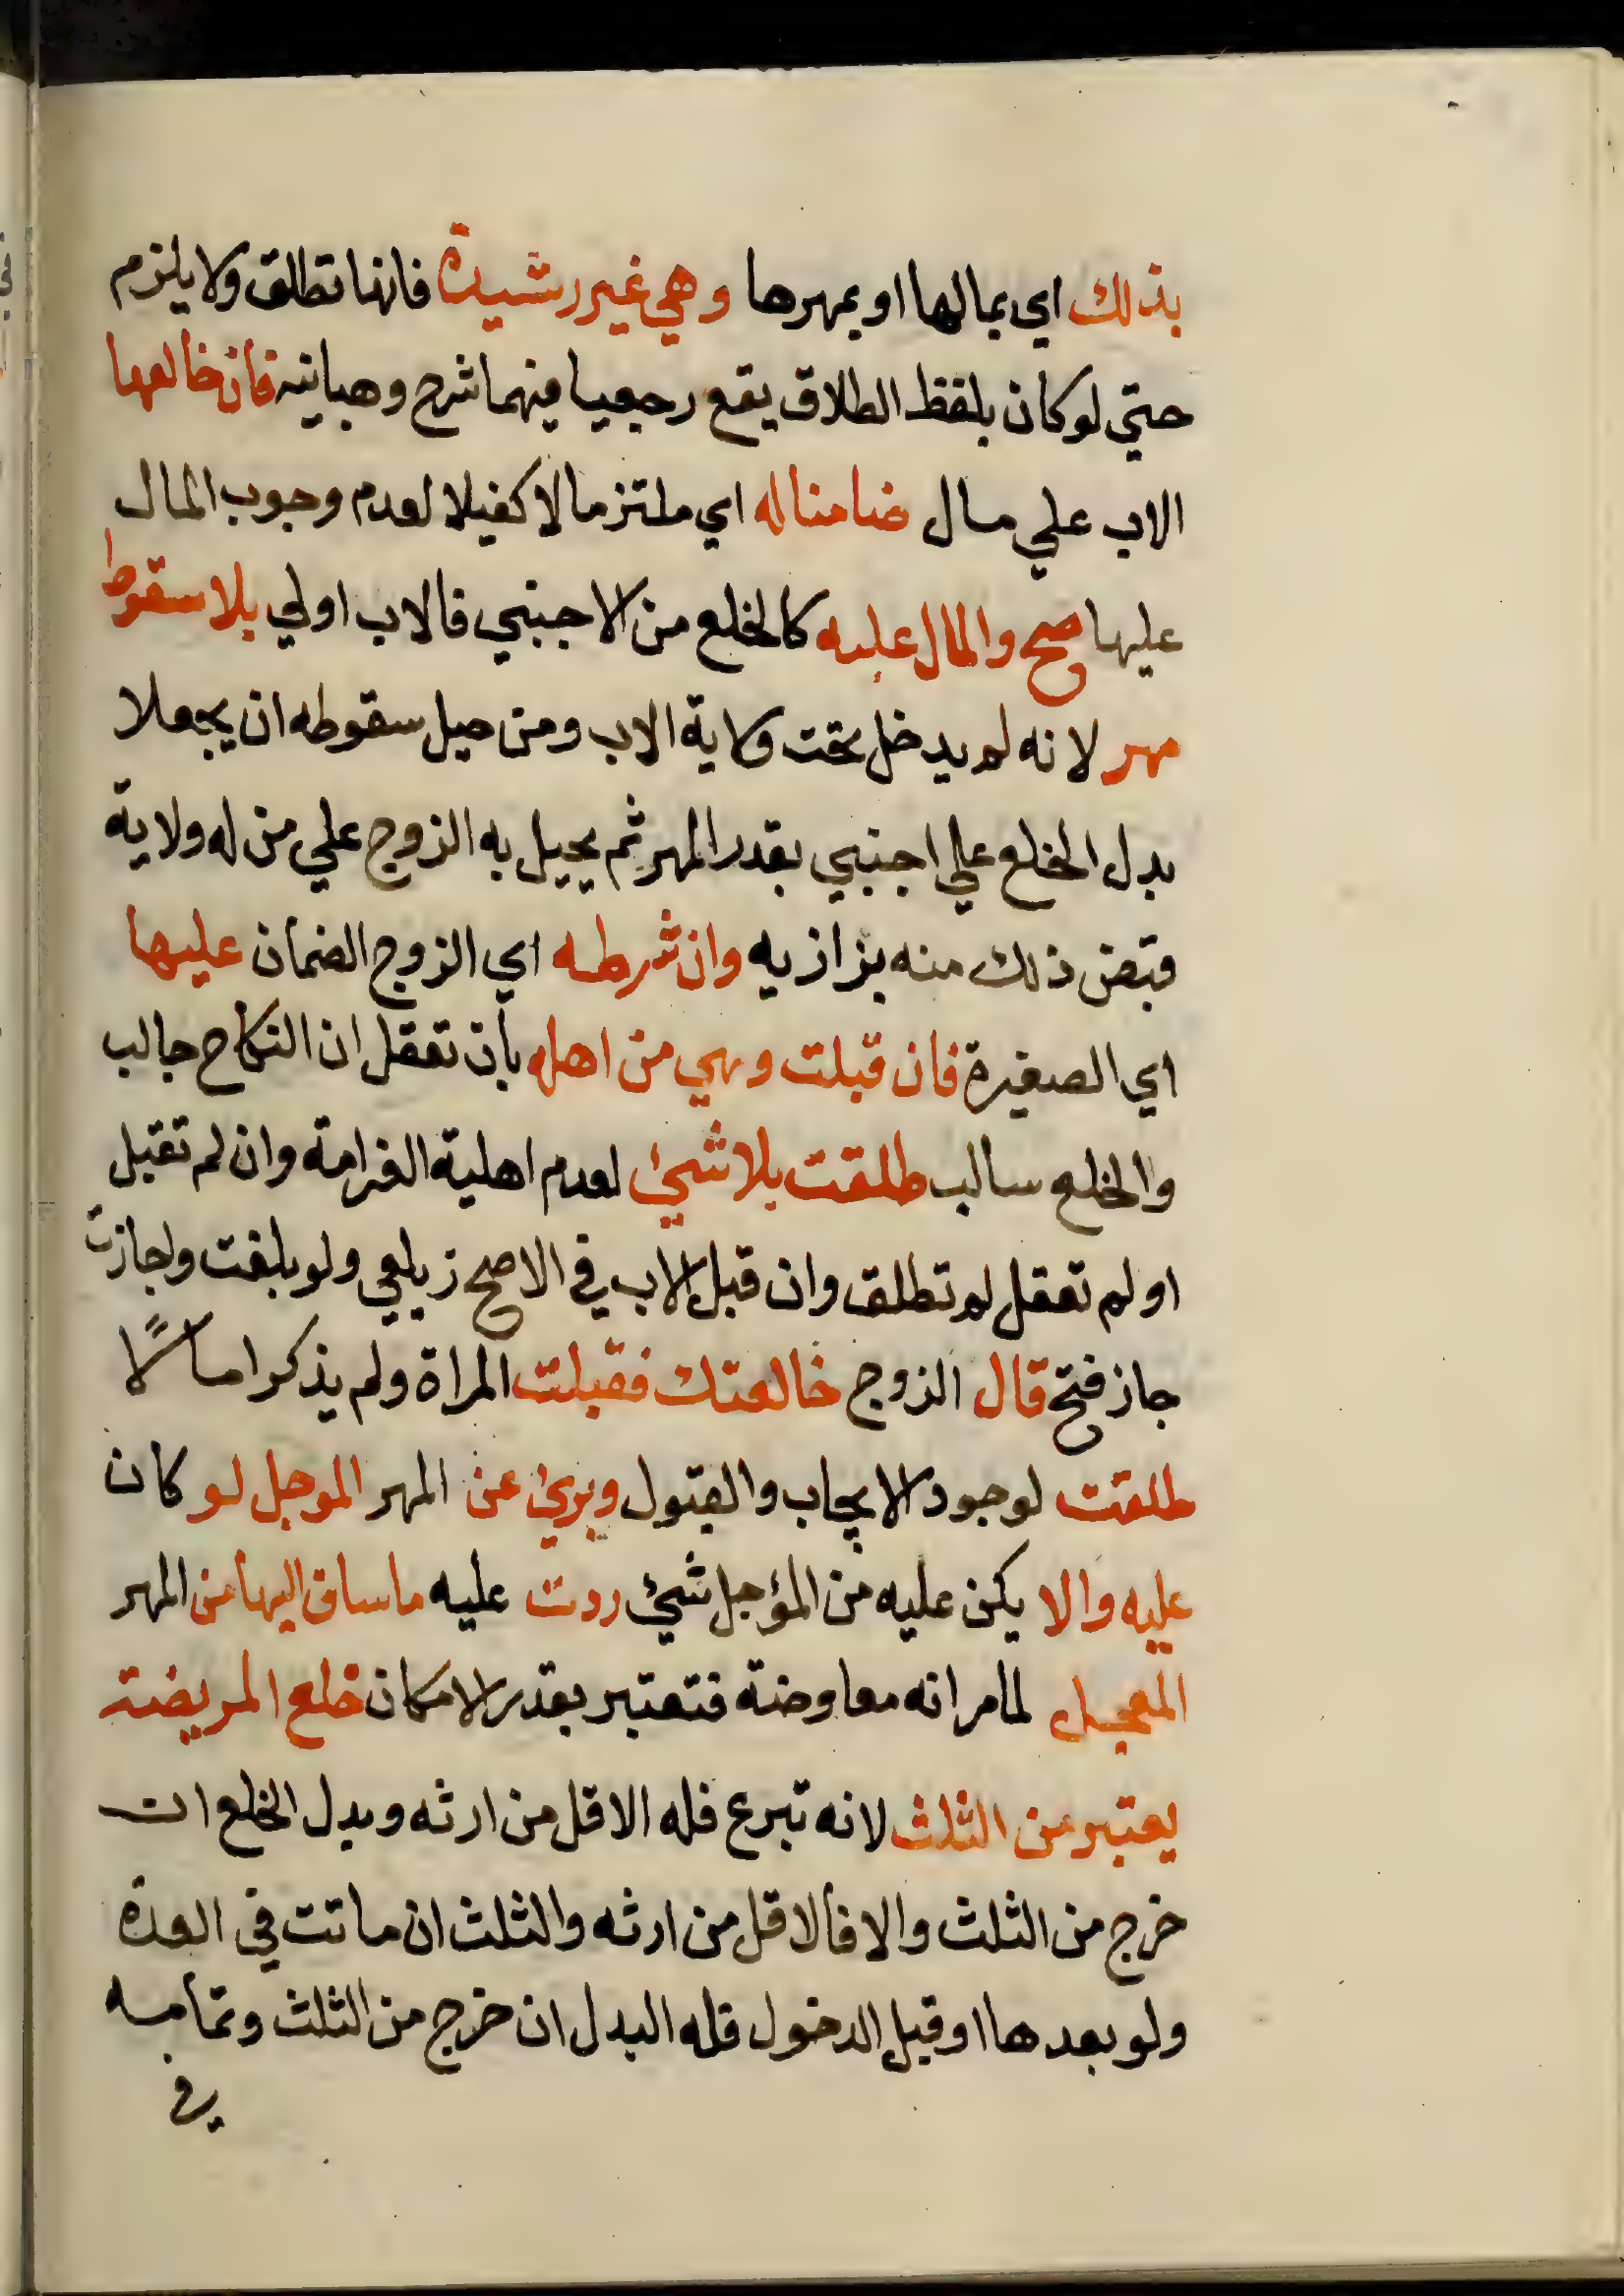 بذلك اي بمالها او بمهرها وهي غير رشيدة فانها تطلق ولا يلزم
حتي لو كان بلفظ الطلاق يقع رجعيا فيهما شرح وهبانيه فان خالعها
الاب علي مال ضامنا له اي ملتزما لا كفيلا لعدم وجوب المال
عليها صح والمال عليه كالخلع من الاجنبي فالاب اولي بلا سقوط
مهر لانه لم يدخل تحت ولاية الاب ومن حيل سقوطه ان يجعلا
بدل الخلع علي اجنبي بقدر المهر ثم يحيل به الزوج علي من له ولاية
قبض ذلك منه بزازيه وان شرطه اي الزوج الضمان عليها
اي الصغيرة فان قبلت وهي من اهله بأن تعقل ان النكاح جالب
والخلع سالب طلقت بلا شيئ لعدم اهلية الغرامة وان لم تقبل
او لم تعقل لم تطلق وان قبل الاب في الاصح زيلعي ولو بلغت واجازت
جاز فتح قال الزوج خالعتك فقبلت المراة ولم يذكرا مالًا
طلقت لوجود الايجاب والقبول وبرئ عن المهر الموجل لو كان
عليه والا يكن عليه من المؤجل شيئ ردت عليه ما ساق اليها من المهر
المعجل لما مر انه معاوضة فتعتبر بقدر الامكان خلع المريضة
يعتبر من الثلث لانه تبرع فله الاقل من ارثه وبدل الخلع ان
خرج من الثلث والا فالاقل من ارثه والثلث ان ماتت في العدة
ولو بعدها او قبل الدخول فله البدل ان خرج من الثلث وتمامه
في